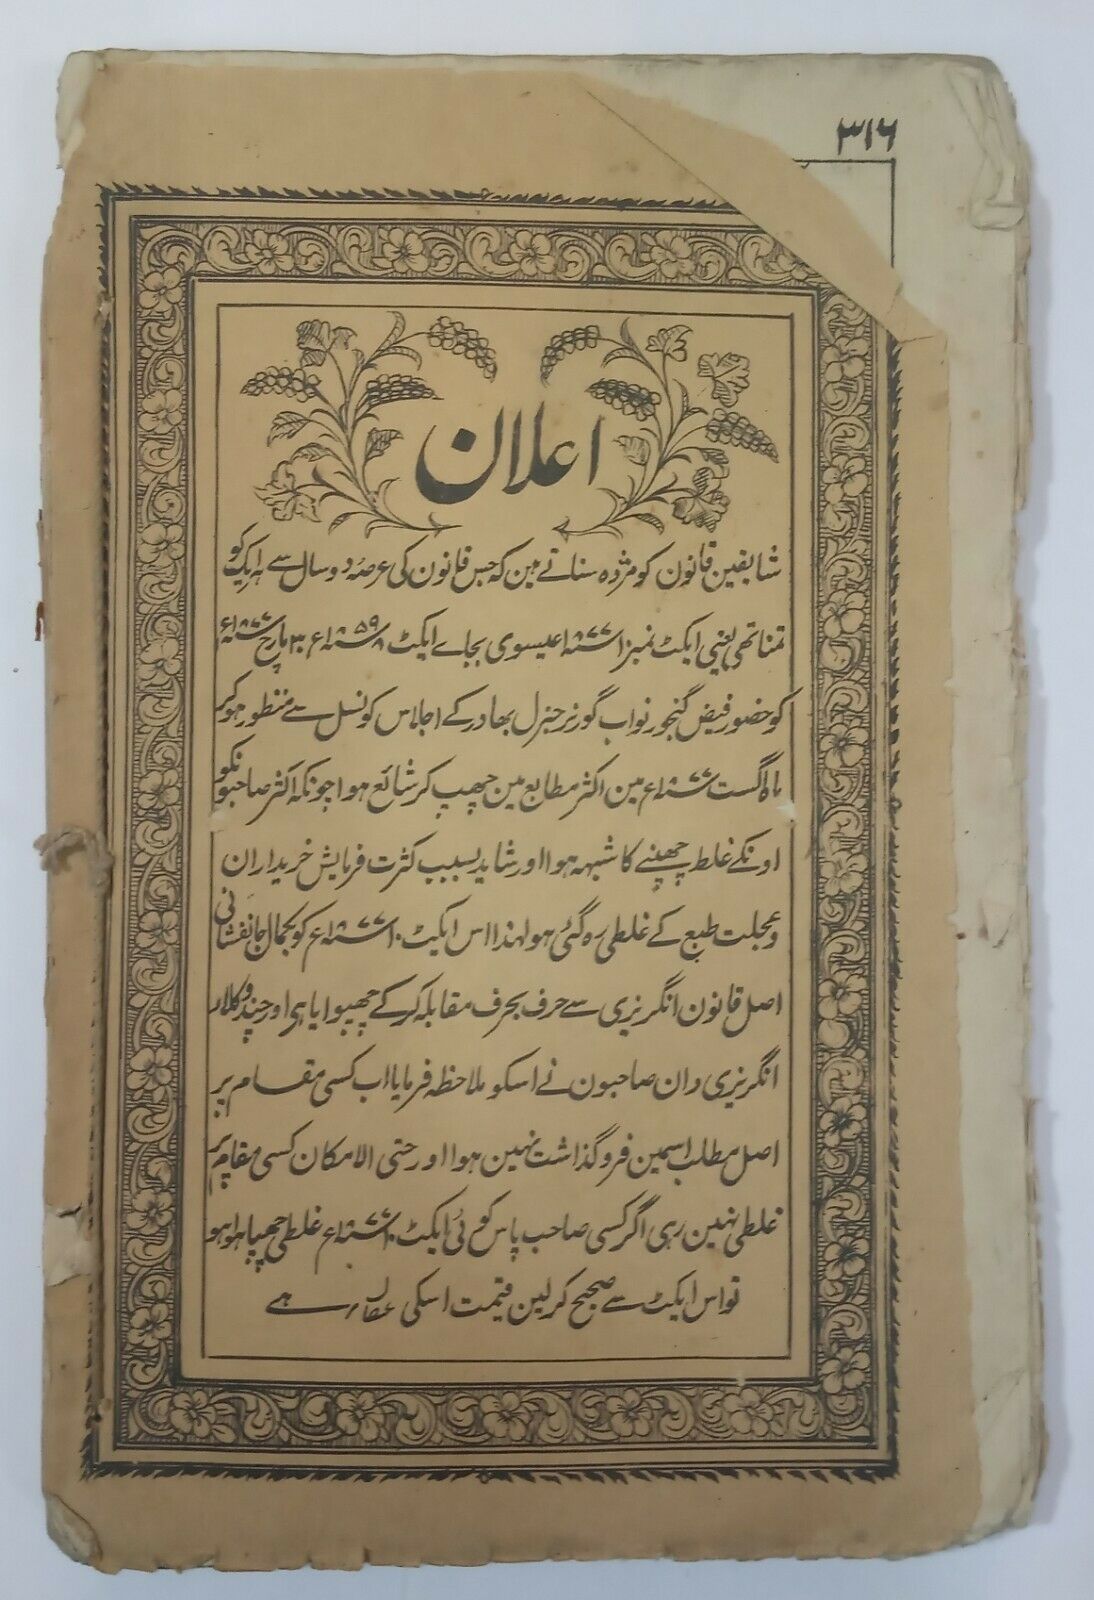 ۳۱۶
اعلان
شایقین قانون کو مژدہ سناتے ہین کہ جس قانون کی عرصہ دو سال سے ہر ایک کو
تمنا تھی یعنی ایکٹ نمبر ۱۰ ۱۸۷۷ء عیسوی بجاے ایکٹ ۸ ۱۸۵۹ء ۳۰ مارچ ۱۸۷۷ء
کو حضور فیض گنجور نواب گورنر جنرل بہادر کے اجلاس کونسل سے منظور ہو کر
ماہ اگست ۱۸۷۷ء مین اکثر مطابع مین چھپ کر شائع ہوا چونکہ اکثر صاحبونکو
اونکے غلط چھپنے کا شبہہ ہوا اور شاید بسبب کثرت فرمایش خریداران
و عجلت طبع کے غلطی رہ گئی ہو لہذا اس ایکٹ ۱۰ ۱۸۷۷ء کو بکمال جانفشانی
اصل قانون انگریزی سے حرف بحرف مقابلہ کر کے چھپوایا ہی اور چند وکلاء
انگریزی دان صاحبون نے اسکو ملاحظہ فرمایا اب کسی مقام پر
اصل مطلب اسمین فروگذاشت نہین ہوا اور حتی الامکان کسی مقام پر
غلطی نہین رہی اگر کسی صاحب پاس کوئی ایکٹ ۱۰ ۱۸۷۷ء غلطی چھپا ہوا ہو
تو اس ایکٹ سے صحیح کر لین قیمت اسکی ہے